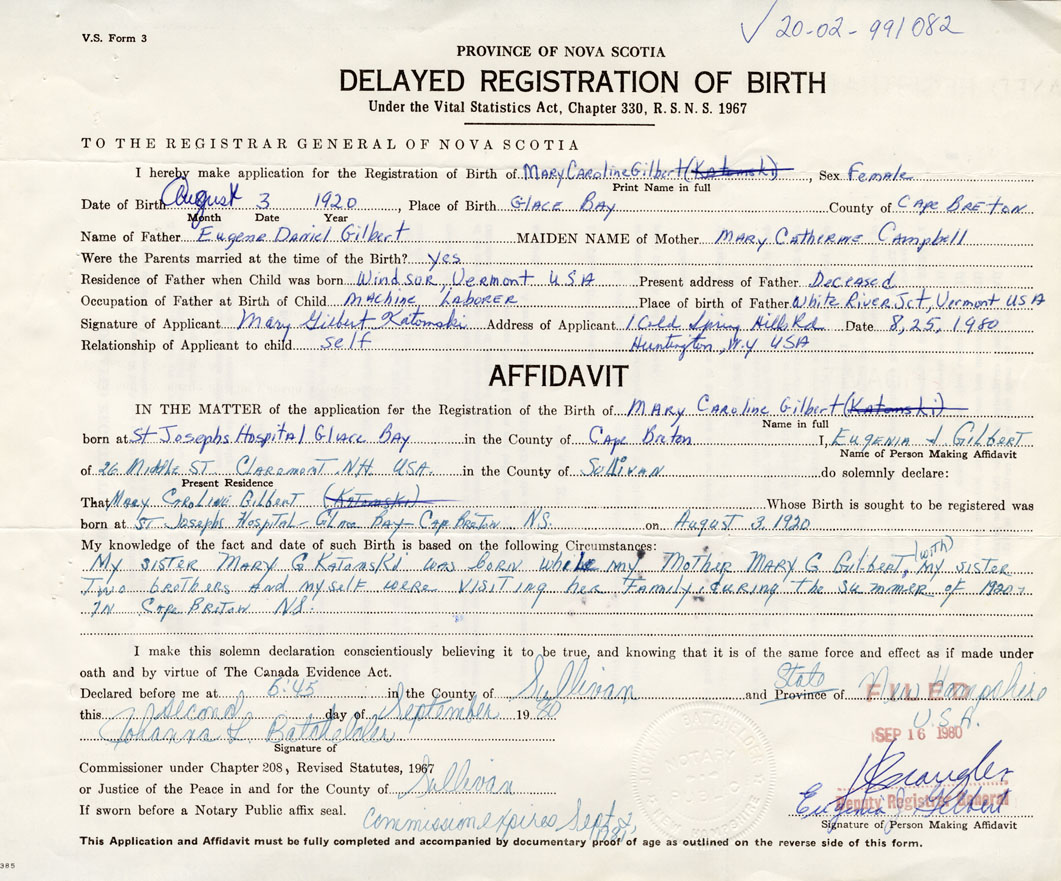 V.S. Form 3
✓ 20-02-991082
PROVINCE OF NOVA SCOTIA
DELAYED REGISTRATION OF BIRTH
Under the Vital Statistics Act, Chapter 330, R. S. N. S. 1967
TO THE REGISTRAR GENERAL OF NOVA SCOTIA
I hereby make application for the Registration of Birth of Mary Caroline Gilbert (Katomski), Sex Female
Print Name in full
Date of Birth August 3 1920, Place of Birth Glace Bay County of Cape Breton
Month Date Year
Name of Father Eugene Daniel Gilbert MAIDEN NAME of Mother Mary Catherine Campbell
Were the Parents married at the time of the Birth? yes
Residence of Father when Child was born Windsor, Vermont USA Present address of Father Deceased
Occupation of Father at Birth of Child Machine Laborer Place of birth of Father White River Jct, Vermont USA
Signature of Applicant Mary Gilbert Katomski Address of Applicant 1 Cold Spring Hills Rd Date 8, 25, 1980
Relationship of Applicant to child self Huntington, N.Y USA
AFFIDAVIT
IN THE MATTER of the application for the Registration of the Birth of Mary Caroline Gilbert (Katomski)
Name in full
born at St Josephs Hospital Glace Bay in the County of Cape Breton I, Eugenia J Gilbert
Name of Person Making Affidavit
of 26 Middle St. Claremont, NH USA. in the County of Sullivan do solemnly declare:
Present Residence
That Mary Caroline Gilbert (Katomski) Whose Birth is sought to be registered was
born at St. Josephs Hospital - Glace Bay - Cape Breton N.S. on August 3, 1920
My knowledge of the fact and date of such Birth is based on the following Circumstances:
My sister Mary G Katomski was born while my Mother Mary G. Gilbert, (with) my sister
Two brothers and myself were visiting her Family, during the summer of 1920,
In Cape Briton NS.
I make this solemn declaration conscientiously believing it to be true, and knowing that it is of the same force and effect as if made under
oath and by virtue of The Canada Evidence Act.
Declared before me at 6:45 in the County of Sullivan and Province of State New Hampshire
FILED
this second day of September 19 80 U.S.A.
SEP 16 1980
Signature of
Commissioner under Chapter 208, Revised Statutes, 1967
or Justice of the Peace in and for the County of Sullivan
Deputy Registrar General
If sworn before a Notary Public affix seal. Commission expires Sept 2, Eugenia J. Gilbert
Signature of Person Making Affidavit
This Application and Affidavit must be fully completed and accompanied by documentary proof of age as outlined on the reverse side of this form.
385